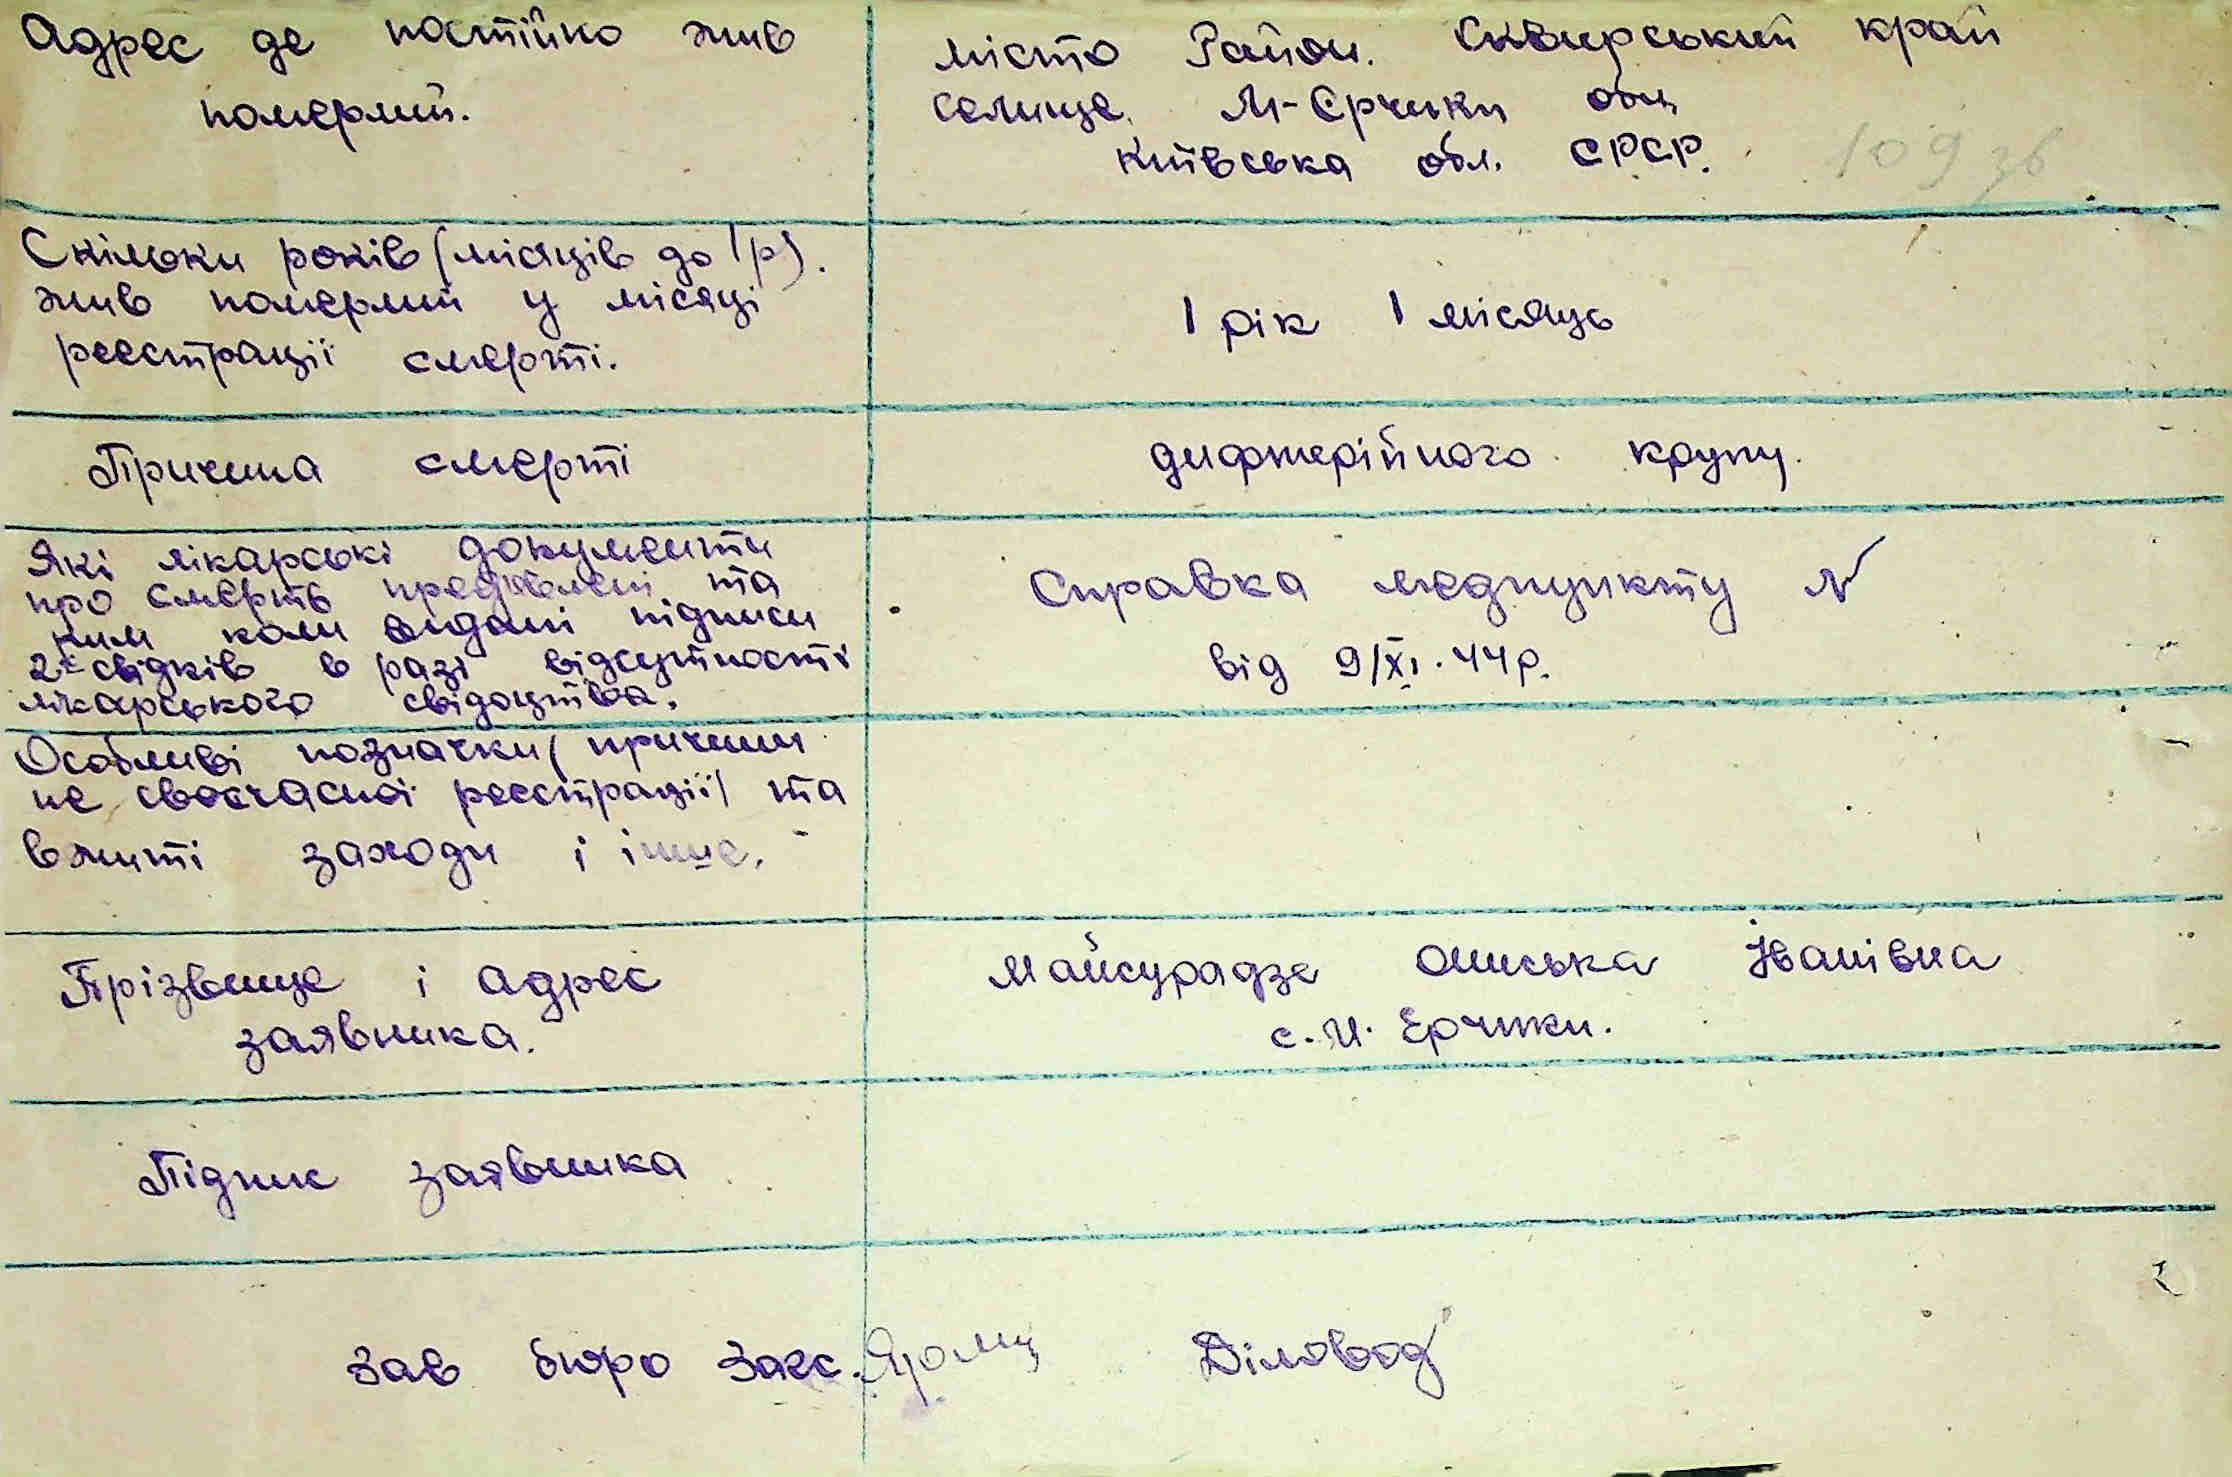 Адрес де постійно жив
померлий.
місто Район. Сквирський край
селище. М-Єрчики обл
Київська обл. СРСР.
109 зв
Скільки років (місяців до 1 р).
жив померлий у місяці
реєстрації смерті.
1 рік 1 місяць
Причина смерті
дифтерійного крупу.
Які лікарські документи
про смерть предявлені та
ким коли видані підписи
2х свідків в разі відсутності
лікарського свідоцтва.
Справка медпункту №
від 9/XI.44р.
Особливі позначки (причини
не своєчасної реєстрації) та
вжиті заходи і інше.
Прізвище і адрес
заявника.
Майсурадзе Ониська Іванівна
с. М. Єрчики.
Підпис заявника
Зав бюро Загс. Діловод